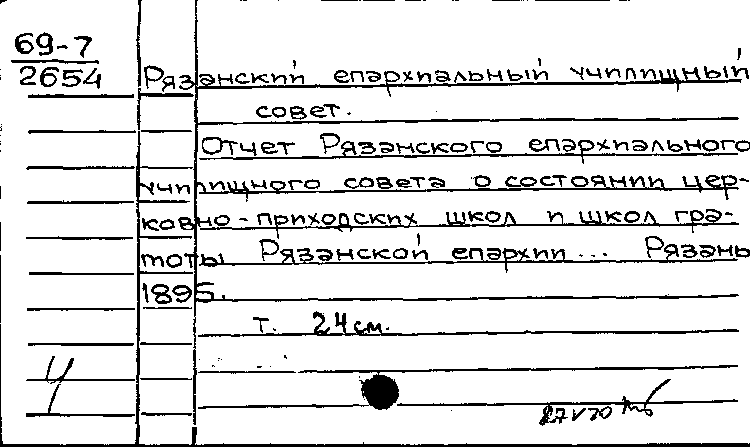 69-7
2654
Рязанский епархиальный училищный
совет.
Отчет Рязанского епархиального
училищного совета о состоянии цер-
ковно-приходских школ и школ гра-
моты Рязанской епархии... Рязань
1895.
т. 24 см.
Ч
27 V 70